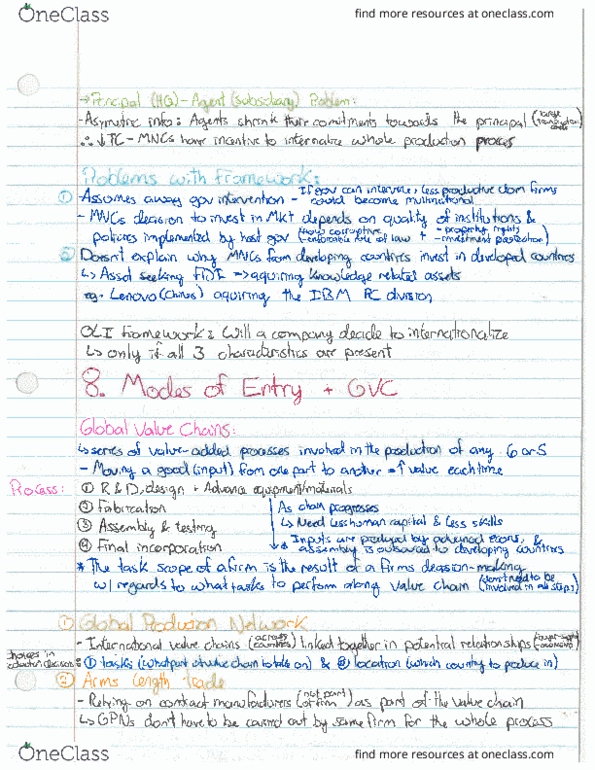 OneClass
find more resources at oneclass.com
→Principal (HQ) - Agent (subsidiary) Problem:
- Asymetric info: Agents shrink their comitments towards the principal (large transaction costs)
∴ ↓TC - MNCs have incentive to internalize whole production process
Problems with Framework:
① Assumes away gov intervention - If gov can intervene, less productive dom firms could become multinational
- MNCs decision to invest in Mkt depends on quality of institutions &
policies implemented by host gov (how corruptive - enforcable rule of law + - property rights - investment protection)
② Doesn't explain why MNCs from developing countries invest in developed countries
↳ Asset seeking FDI ⇒ aquiring knowledge related assets
eg. Lenovo (China) aquiring the IBM PC division
OLI Framework: Will a company decide to internationalize
↳ only if all 3 characteristics are present
8. Modes of Entry + GVC
Global Value Chains:
↳ series of value-added processes involved in the production of any G or S
- Moving a good (input) from one part to another = ↑ value each time
Process: ① R & D, design + Advance equipment/materials
② Fabrication
As chain progresses
③ Assembly & testing
↳ Need less human capital & less skills
④ Final incorporation
↳ Inputs are produced by advanced econs, & assembly is outsourced to developing countries
* The task scope of a firm is the result of a firms decision-making
w/ regards to what tasks to perform along value chain (don't need to be involved in all steps)
① Global Production Network
- International value chains (across countries) linked together in potential relationships
choices in production decisions: ① tasks (what part of value chain to take on) & ② location (which country to produce in)
② Arms length trade
- Relying on contract manufacturers (not part of firm) as part of the value chain
↳ GPNs don't have to be carried out by same firm for the whole process
OneClass
find more resources at oneclass.com